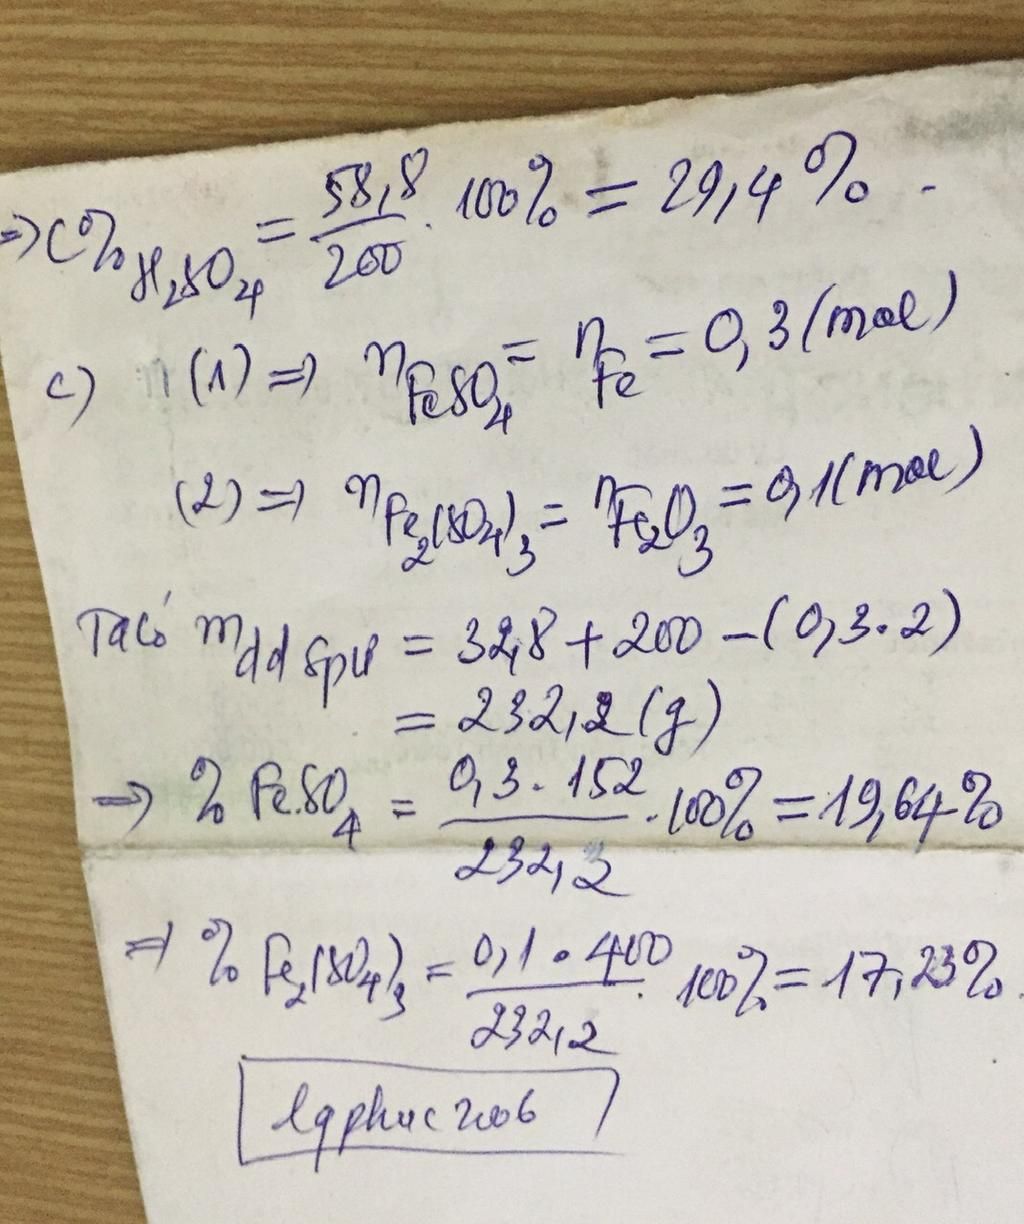 => C%H₂SO₄ = 58,8/200 . 100% = 29,4%.
c) (1) => nFeSO₄ = nFe = 0,3 (mol)
(2) => nFe₂(SO₄)₃ = nFe₂O₃ = 0,1 (mol)
Ta có mdd spư = 32,8 + 200 - (0,3.2)
= 232,2 (g)
=> % FeSO₄ = 0,3 . 152/232,2 . 100% = 19,64%
=> % Fe₂(SO₄)₃ = 0,1 . 400/232,2 . 100% = 17,23%.
lqphuc2006